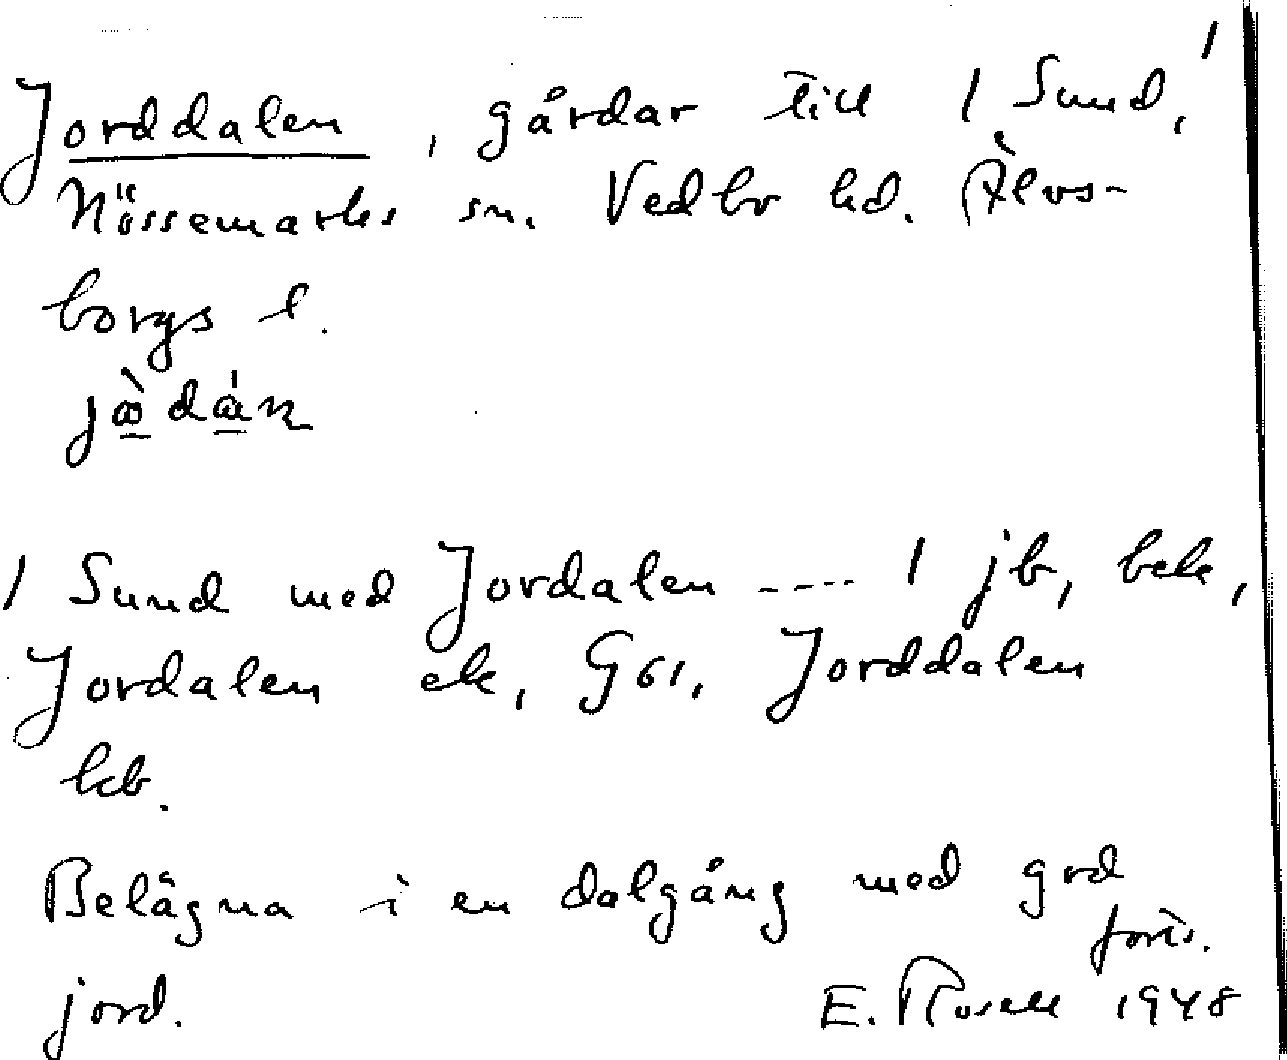 1
Jorddalen, gårdar till 1 Sund,
Nössemarks sn. Vedbo hd. Älvs-
borgs l.
1 Sund med Jordalen ---- 1 jb, bek,
Jordalen ek, G61, Jorddalen
kb.
Belägna i en dalgång med god
forts.
jord. E. Rosell 1948